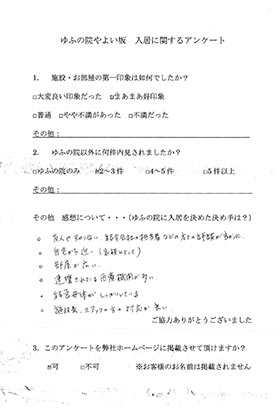 ゆふの院やよい坂 入居に関するアンケート
1. 施設・お部屋の第一印象は如何でしたか?
□大変良い印象だった ☑まあまあ好印象
□普通 □やや不満があった □不満だった
その他:
2. ゆふの院以外に何件内見されましたか?
□ゆふの院のみ ☑2~3件 □4~5件 □5件以上
その他:
その他 感想について・・・(ゆふの院に入居を決めた決め手は?)
。友人や知り合い、
。自宅から近い
。部屋が広い
。連携されたる医療機関が多い
。経営母体がしっかりしている
。施設長、スタッフの方の対応が良い
ご協力ありがとうございました
3. このアンケートを弊社ホームページに掲載させて頂けますか?
☑可 □不可 ※お客様のお名前は掲載されません